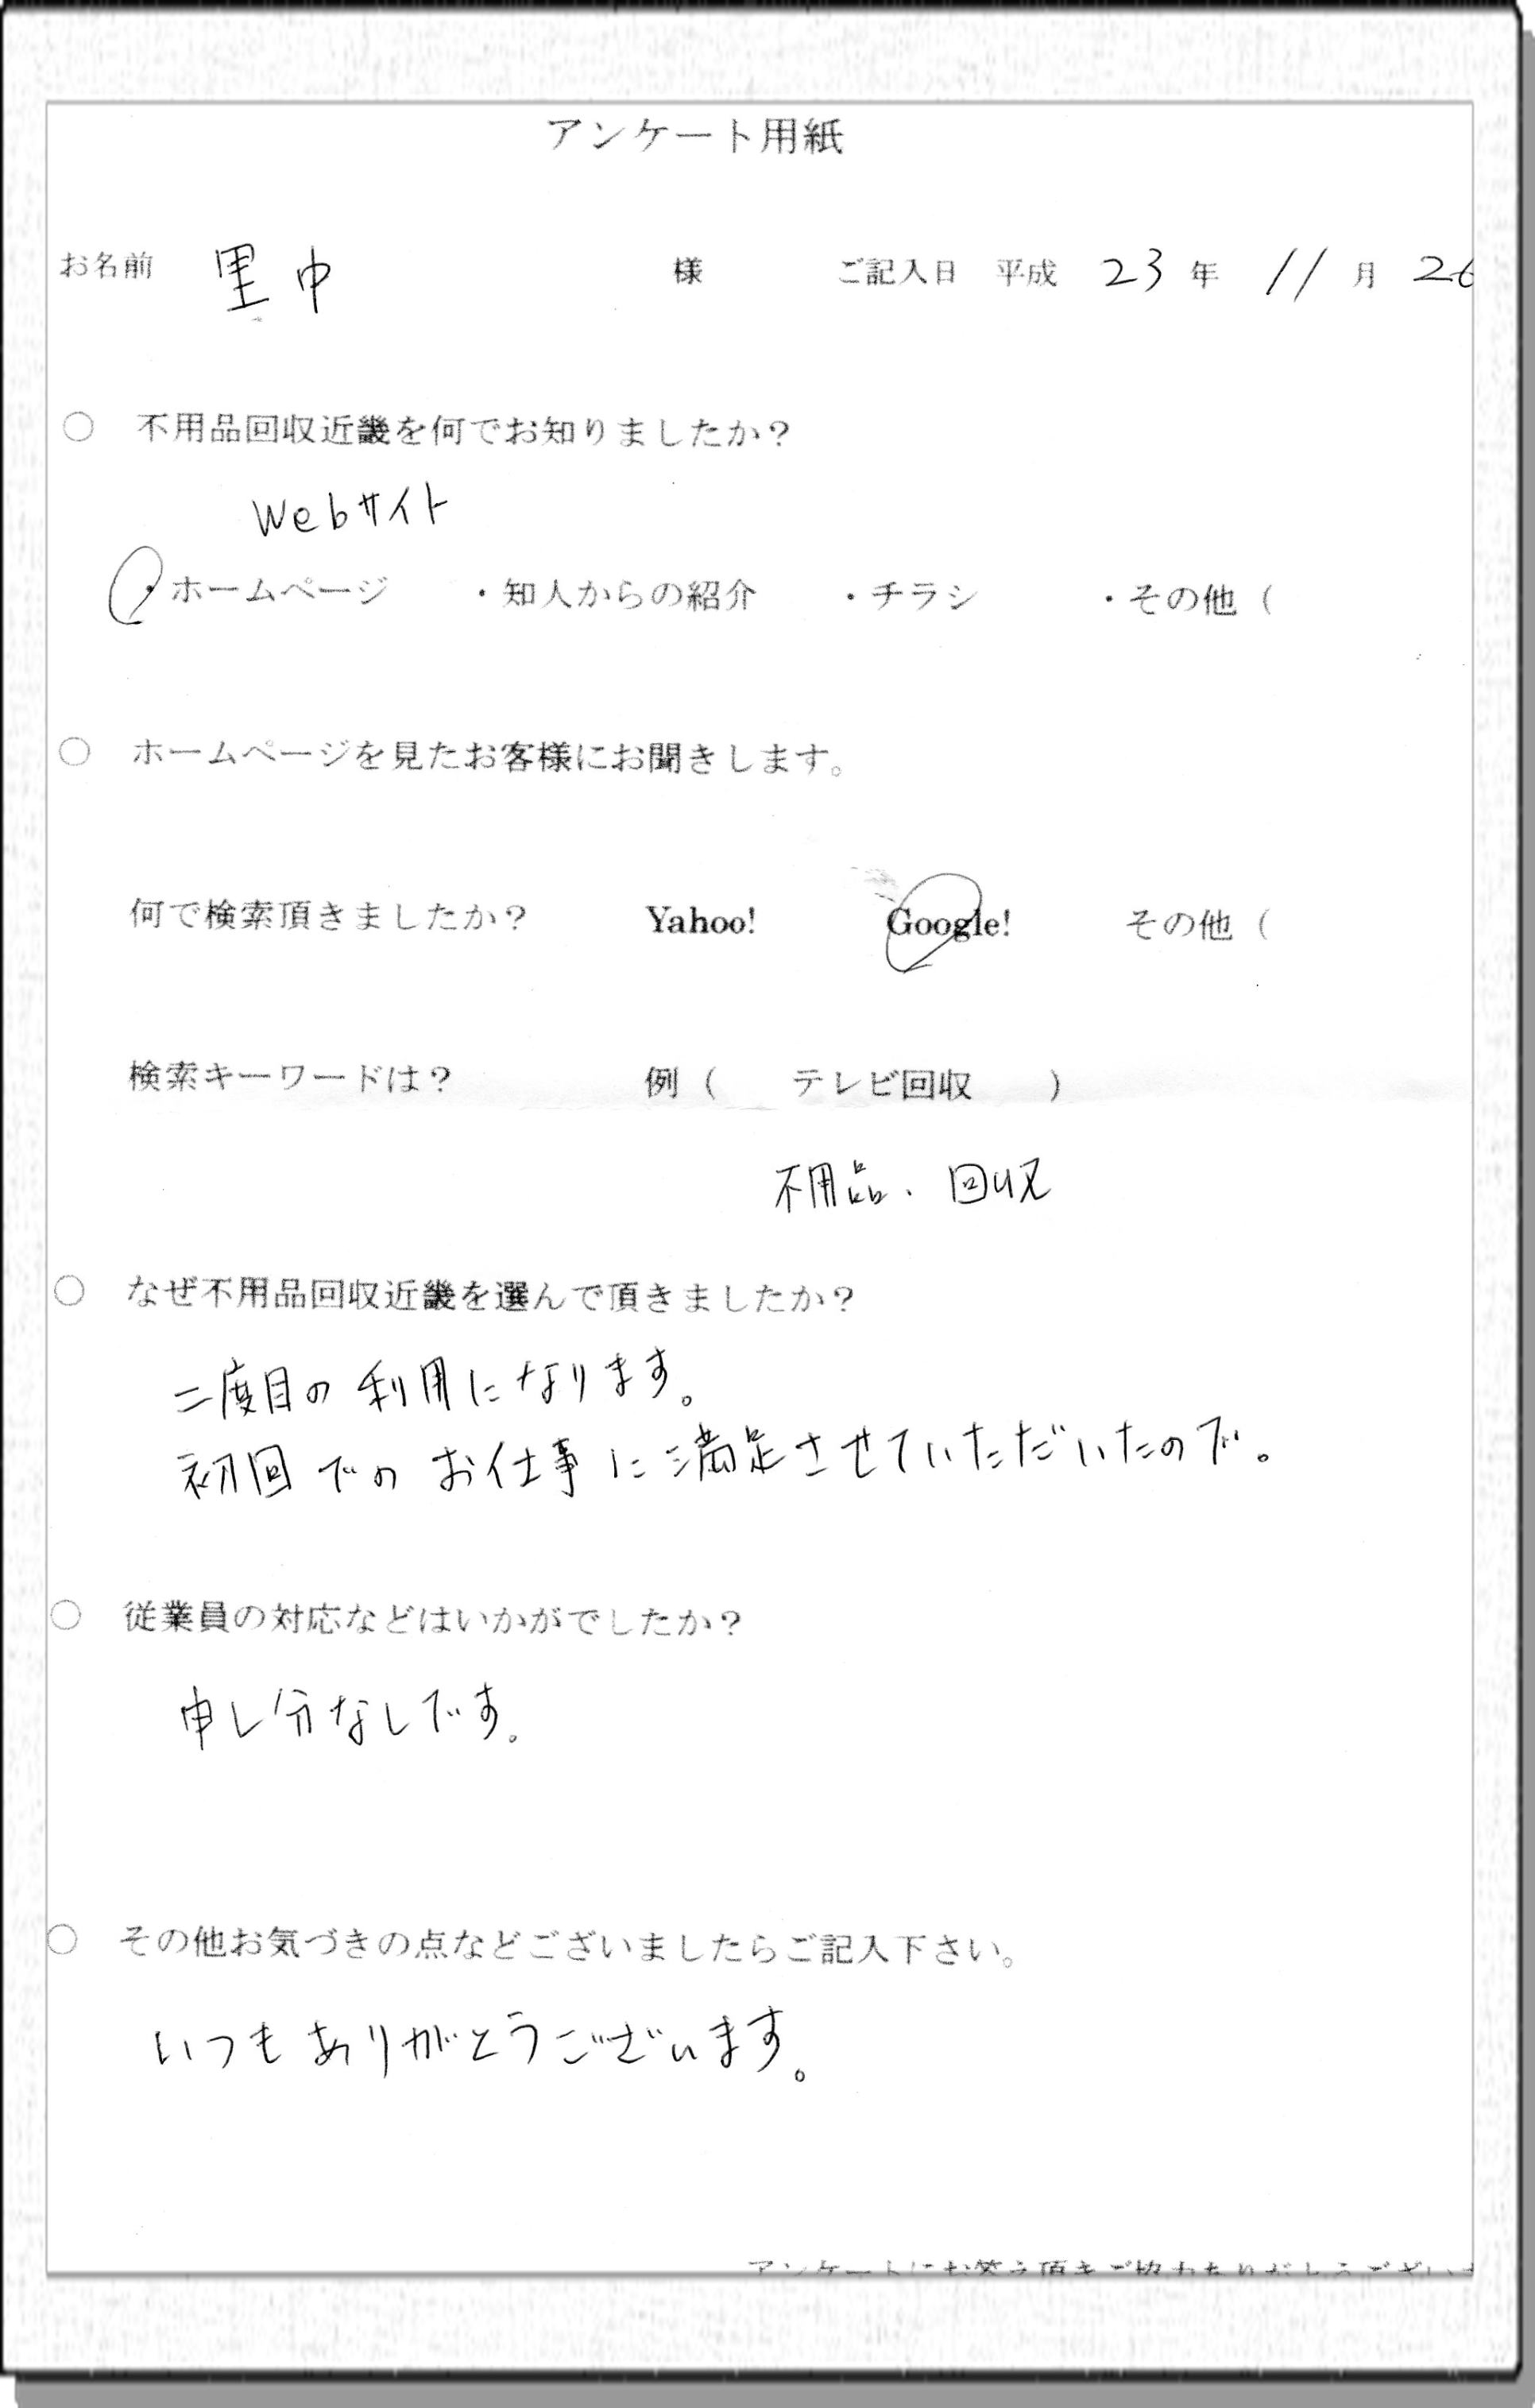 アンケート用紙
お名前 里中 様 ご記入日 平成 23 年 11 月 26
○ 不用品回収近畿を何でお知りましたか？
Webサイト
・ホームページ ・知人からの紹介 ・チラシ ・その他（
○ ホームページを見たお客様にお聞きします。
何で検索頂きましたか？ Yahoo! Google! その他（
検索キーワードは？ 例（ テレビ回収 ）
不用品、回収
○ なぜ不用品回収近畿を選んで頂きましたか？
二度目の利用になります。
初回でのお仕事に満足させていただいたので。
○ 従業員の対応などはいかがでしたか？
申し分なしです。
○ その他お気づきの点などございましたらご記入下さい。
いつもありがとうございます。
アンケートにお答え頂きご協力ありがとうござい